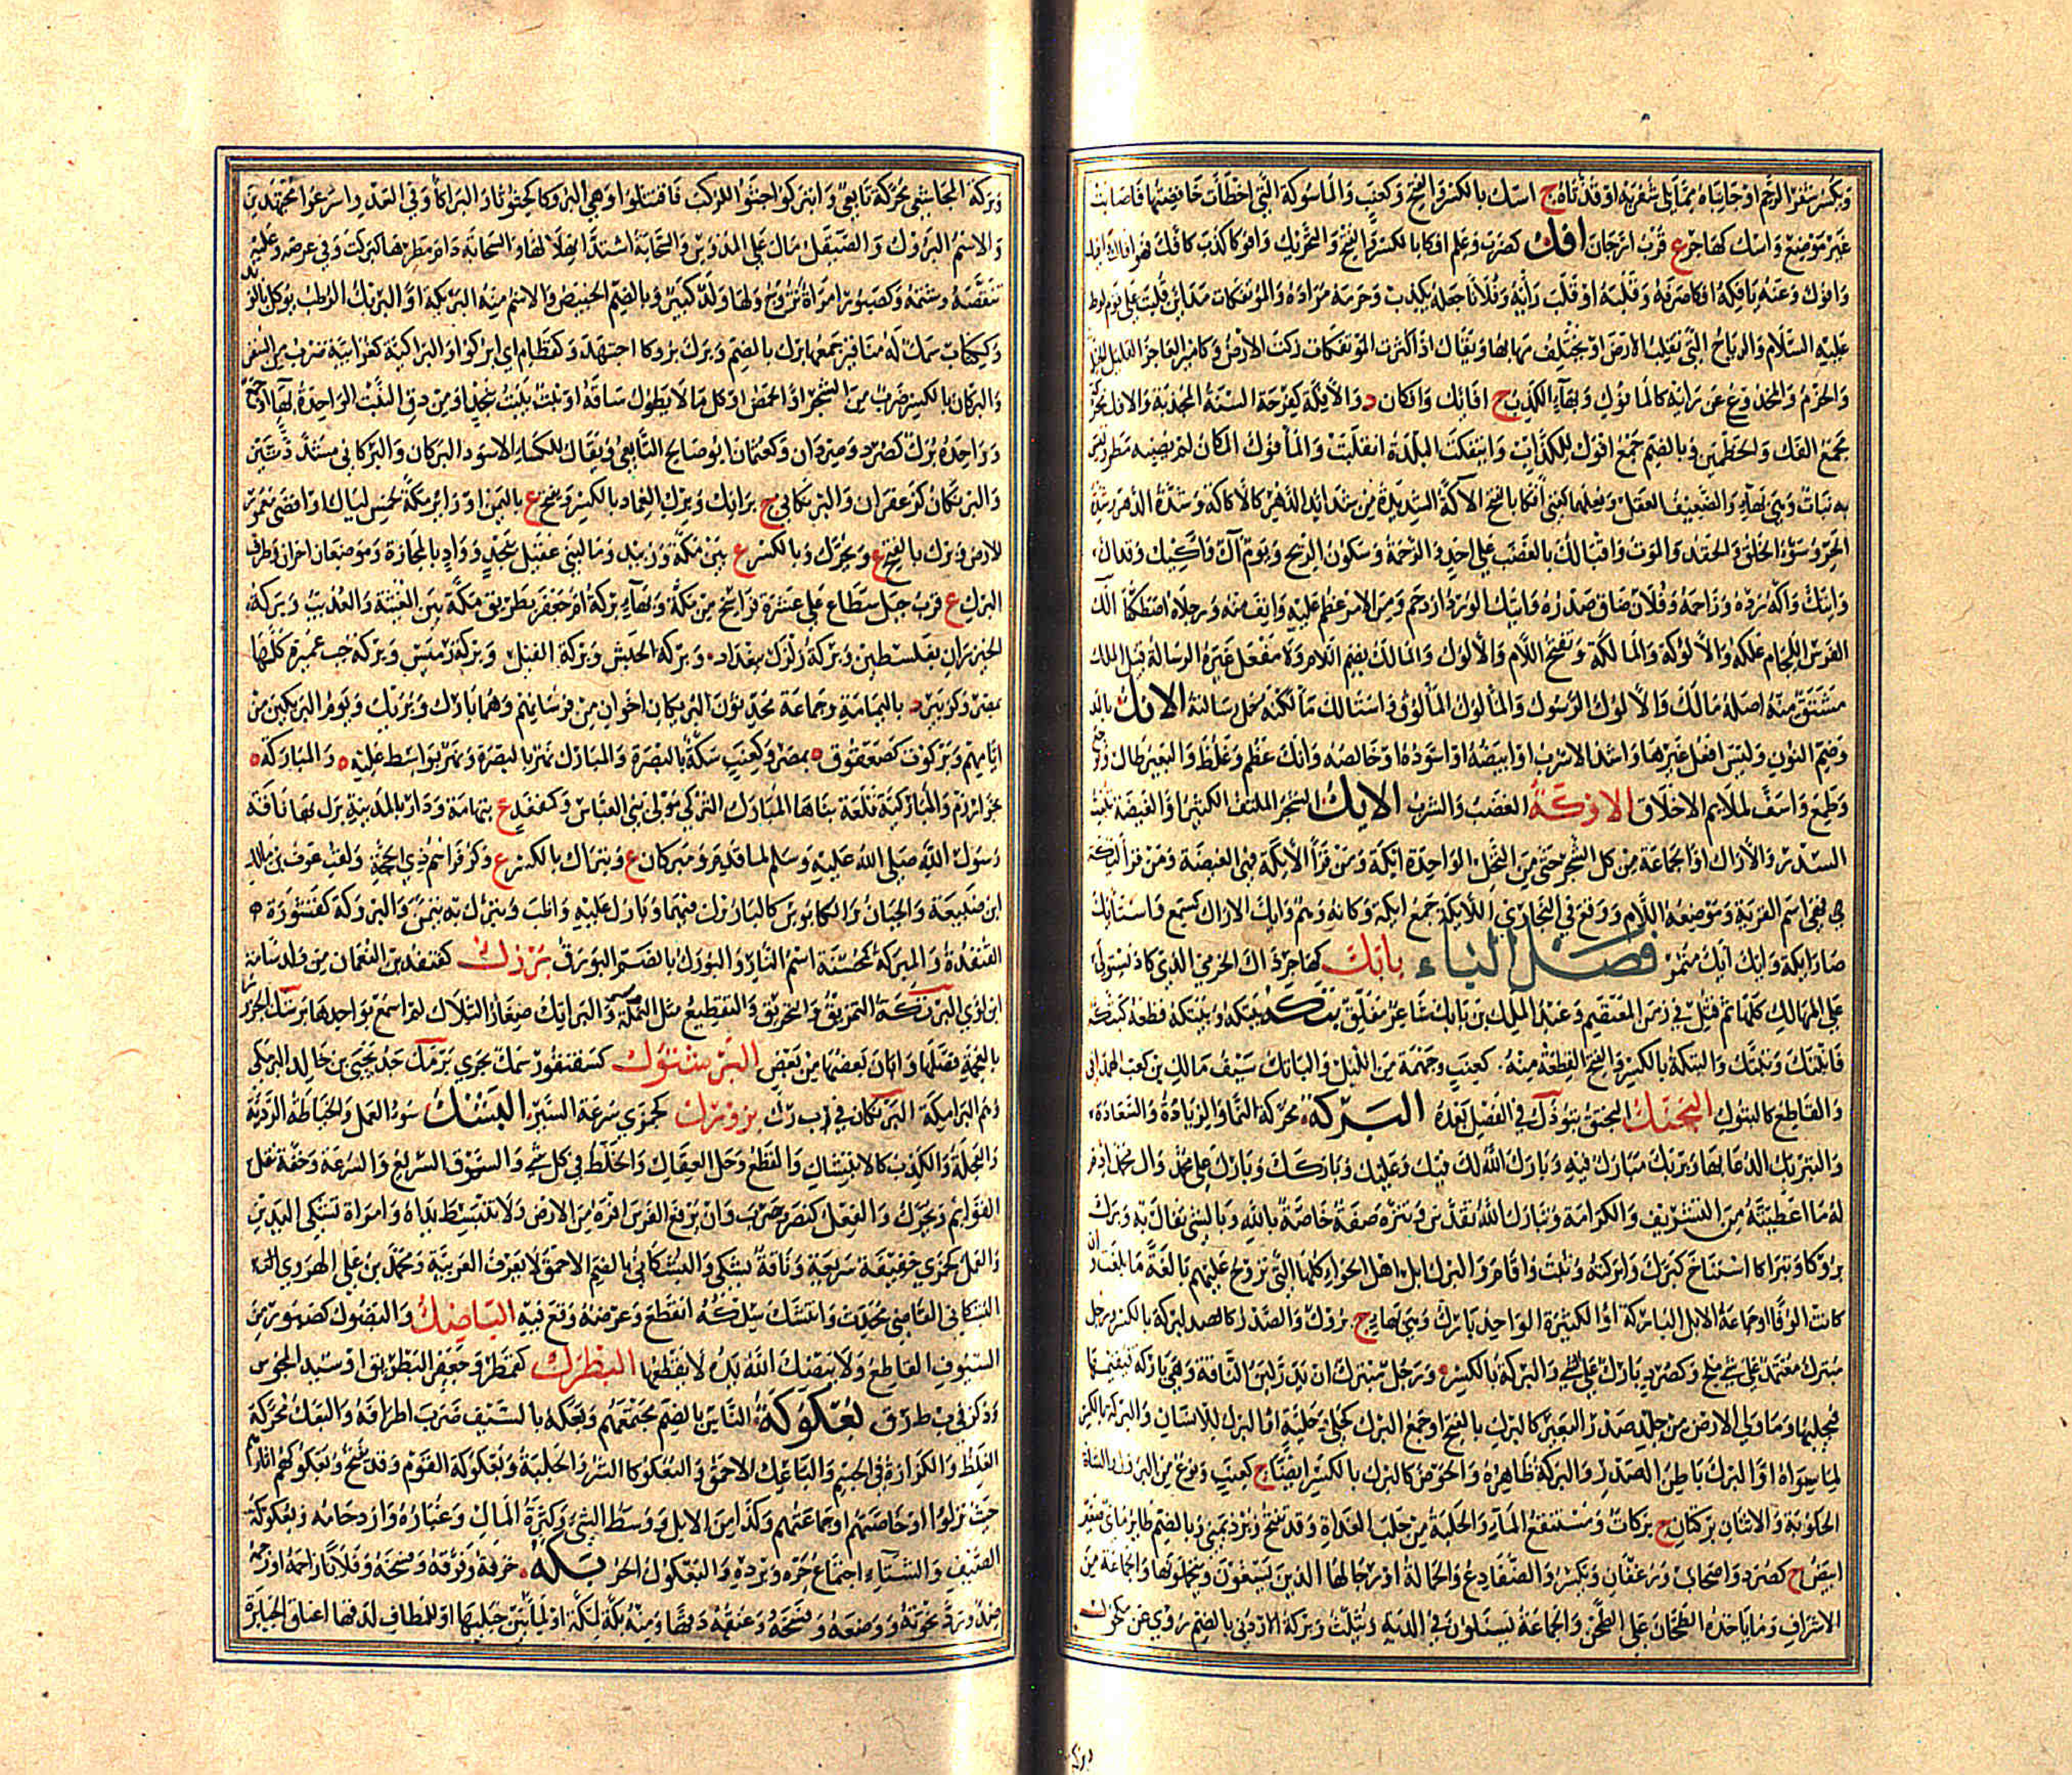 وبكسر شفر الرحم او جانباه مما يلي شفريه او قذتاه ج اسك بالكسر والفتح وكعنب والماسوكة التي اخطأت خافضتها فاصابت
غير موضع واسك كهاجر ع قرب ارجان افك كضرب وعلم افكا بالكسر والفتح والتحريك وافوكا كذب كافك فهو افاك وافيك
وافوك وعنه يافكه افكا صرفه وقلبه او قلب رأيه وفلانا جعله يكذب وحرمه مراده والمؤتفكات مدائن قلبت على قوم لوط
عليه السلام والرياح التي تقلب الارض او تختلف مهابها ويقال اذا كثرت المؤتفكات زكت الارض وكامير العاجز القليل
والحزم والمخدوع عن رايه كالمأفوك وبهاء الكذب ج افائك وافكان د والافكة كفرحة السنة المجدبة والافك محركة
مجمع الفك والخطمين وبالضم جمع افوك للكذاب وائتفكت البلدة انقلبت والمأفوك المكان لم يصبه مطر وليس
به نبات وهي بهاء والضعيف العقل وفعلهما كعني أفكا بالفتح الأكة الشديدة من شدائد الدهر كالاكاكة وشدة الدهر وشدة
الحر وسوء الخلق والحقد والموت واقبالك بالغضب على احد والزحمة وسكون الريح ويوم أك واكيك وقد اك
وائتك واكه رده وزاحمه وفلان ضاق صدره وائتك الورد ازدحم ومن الامر عظم عليه وانف منه ورجلاه اصطكتا ألك
الفرس اللجام علكه والألوكة والمألكة وتفتح اللام والألوك والمألك بضم اللام ولا مفعل غيره الرسالة قيل الملك
مشتق منه اصله مألك والألوك الرسول والمألوك المألوق واستألك مألكته حمل رسالته الانك بالمد
وضم النون وليس افعل غيرها واشد الاسرب او ابيضه او اسوده او خالصه وانك عظم وغلظ والبعير طال
وطمع واسف لملايم الاخلاق الاوكة الغضب والشر الايك الشجر الملتف الكثير او الغيضة تنبت
السدر والاراك او الجماعة من كل الشجر حتى من النخل الواحدة ايكة ومن قرأ الأيكة فهي الغيضة ومن قرأ ليكة
فهي اسم القرية وموضعه اللام ووقع في البخاري الليكة جمع ايكة وكأنه وهم وايك الاراك كسمع واستأيك
صار ايكة وايك ايك مثمر فصل الباء بابك كهاجر ذاك الخرمي الذي كاد يستولي
على الممالك كلها ثم قتل في زمن المعتصم وعبد الملك بن بابك شاعر مفلق بتكه يبتكه ويبتكه قطعه كبتكه
فانبتك وتبتك والبتكة بالكسر والفتح القطعة منه كعنب وجهمة من الليل والباتك سيف مالك بن كعب الهمداني
والقاطع كالبتوك البختك البختق بتوذك في الفصل بعده البركة محركة النماء والزيادة والسعادة
والتبريك الدعاء بها وبريك مبارك فيه وبارك الله لك وفيك وعليك وباركك وبارك على محمد وآل محمد ادم
له ما اعطيته من التشريف والكرامة وتبارك الله تقدس وتنزه صفة خاصة بالله وبالشيء تفاءل به وبرك
بروكا وتبراكا استناخ كبرك وابركته وثبت واقام والبرك ابل اهل الحواء كلها التي تروح عليهم بالغة ما بلغت وان
كانت الوفا او جماعة الابل الباركة او الكثيرة الواحد بارك وهي بهاء ج بروك والصدر كالبركة بالكسر ورجل
مبترك معتمد على شيء ملح وكصرد بارك على الشيء والبركة بالكسر ورجل مبترك ان يدر لبن الناقة وهي باركة فيقيمها
فيحلبها وما ولي الارض من جلد صدر البعير كالبرك بالفتح او جمع البرك كحلي وحلية او البرك للانسان والبركة بالكسر
لما سواه او البرك باطن الصدر والبركة ظاهره والحوض كالبرك بالكسر ايضا ج كعنب ونوع من البروك والشاة
الحلوبة والاثنان بركتان ج بركات ومستنقع الماء والحلبة من حلب الغداة وقد تفتح وبرد يمني وبالضم طائر مائي صغير
ابيض ج كصرد واصحاب ورغفان وتكسر والضفادع والحمالة او رجالها الذين يسعون ويتحملونها والجماعة من
الاشراف وما ياخذه الطحان على الطحن والجماعة يسألون في الدية وتثلث وبركة الاردني بالضم روى عن مكحول
وبركة المجاشعي محركة تابعي وابتركوا جثوا للركب فاقتتلوا وهي البروكاء كجلولاء والبراكاء وفي العدو اسرعوا مجتهدين
والاسم البروك والصيقل مال على المدوس والسحابة اشتد انهلالها والسماء دام مطرها كابركت وفي عرضه وعليه
تنقصه وشتمه وكصبور امرأة تزوج ولها ولد كبير وبالضم الخبيص والاسم منه البريكة او البريك الرطب يؤكل بالزبد
وككتاب سمك له مناقير جمعها برك بالضم وبرك بروكا اجتهد وكقطام اي ابركوا والبراكية كغرابية ضرب من السفن
والبركان بالكسر ضرب من الشجر او الحمض او كل ما لا يطول ساقه او نبت ينبت بنجد او من دق النبت الواحدة بهاء او جمع
وواحده برك كصرد وصردان وكعثمان ابو صالح التابعي ويقال للكساء الاسود البركان والبركاني مشددتين
والبرنكان كزعفران والبرنكاني ج برانك وبرك الغماد بالكسر ويفتح ع باليمن او وراء مكة بخمس ليال او اقصى معمور
الارض وبرك بالفتح ع ويحرك وبالكسر ع بين مكة وزبيد وماء لبني عقيل بنجد وواد بالمجازة وموضعان اخران وطرف
البرك ع قرب جبل سطاع على عشرة فراسخ من مكة وبهاء بركة ام جعفر بطريق مكة بين المغيثة والعذيب وبركة
الخيزران بفلسطين وبركة زلزل ببغداد وبركة الحبش وبركة الفيل وبركة رميس وبركة جب عميرة كلها
بمصر وكزبير د باليمامة وجماعة محدثون البريكان اخوان من فرسانهم وهما بارك وبريك ويوم البريكين من
ايامهم وبركوت كصعفوق ه بمصر وكعنب سكة بالبصرة والمبارك نهر بالبصرة ونهر بواسط عليه ه والمباركة ه
بخوارزم والمباركية قلعة بناها المبارك التركي مولى بني العباس وكمقعد ع بتهامة ودار بالمدينة برك بها ناقة
رسول الله صلى الله عليه وسلم لما قدم ومبركان ع وتبراك بالكسر ع وكزفر اسم ذي الحجة ولقب عوف بن مالك
ابن ضبيعة والجبان والكابوس كالباروك فيهما وبارك عليه واظب وتبرك به تيمن والبروكة كقشورة ه
القنفذة والمبركة كمحسنة اسم النار والبورك بالضم البورق برزك كقنفذ بن النعمان من ولد سامة
ابن لؤي البرتكة التمزيق والتخريق والتقطيع مثل النملة والبراتك صغار التلال لم اسمع بواحدها برشك الجزور
بالفحمة فصلها وابان بعضها من بعض البرشتوك كسقنقور سمك بحري برمك جد يحيى بن خالد البرمكي
وهم البرامكة البرنكان في ب ر ك بزوبزك كجمزى سرعة السير البشك سوء العمل والخياطة الرديئة
والعجلة والكذب كالابتشاك والقطع وحل العقال والخلط في كل شيء والسوق السريع والسرعة وخفة نقل
القوائم ويحرك والفعل كنصر وضرب وان يرفع الفرس حافره من الارض ولا تنبسط يداه وامرأة بشكى اليدين
والعمل كجمزى خفيفة سريعة وناقة بشكى والبشكاني بالضم الاحمق لا يعرف العربية ومحمد بن علي الهروي
البشكاني القاضي محدث وابتشك سلكه انقطع وعرضه وقع فيه الباضك والبضوك كصبور من
السيوف القاطع ولا يبضك الله يده لا يقطعها البطرك كقمطر وجعفر البطريق او سيد المجوس
وذكر في ب ط ر ق بعكوكة الناس بالضم مجتمعهم وبعكه بالسيف ضرب اطرافه والبعك محركة
الغلظ والكزازة في الجسم والباعك الاحمق والبعكوكاء الشر والجلبة وبعكوكة القوم وقد تفتح وبعكوكهم اثارهم
حيث نزلوا او خاصتهم او جماعتهم وكذا من الابل ووسط الشيء وكثرة المال وغباره وازدحامه وبعكوكة
الصيف والشتاء اجتماع حره وبرده والبعكوك الحر بكه خرقه وفرقه وفسخه وفلانا زاحمه او زحمه
ضد ورد نخوته ووضعه وفسخه وعنقه دقها ومنه بكة لمكة او لما بين جبليها او للمطاف لدقها اعناق الجبابرة